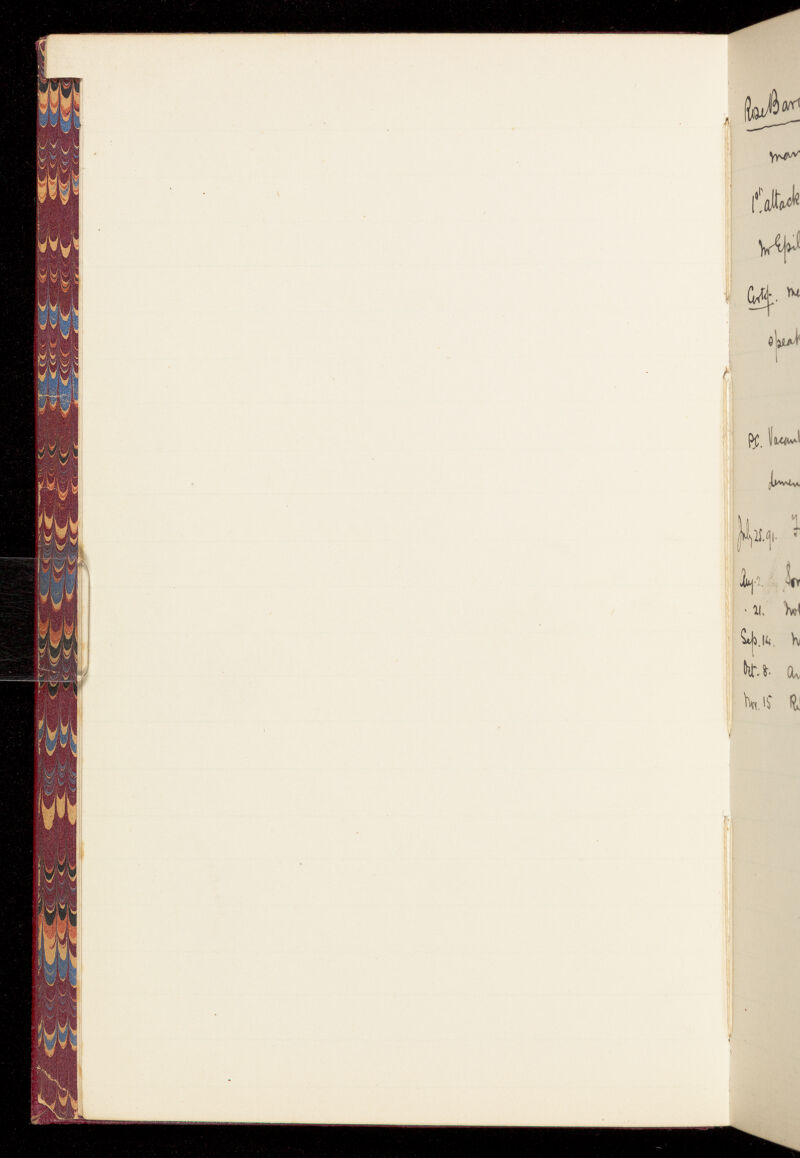 Rose Bar
mar
1st. attack
No Epil
Certif. me
speak
P.C. Vacant
demen
July 25. 91. F
Aug. 2. Som
" 21. Not
Sep. 14. N
Oct. 8. An
Nov. 15 Ri